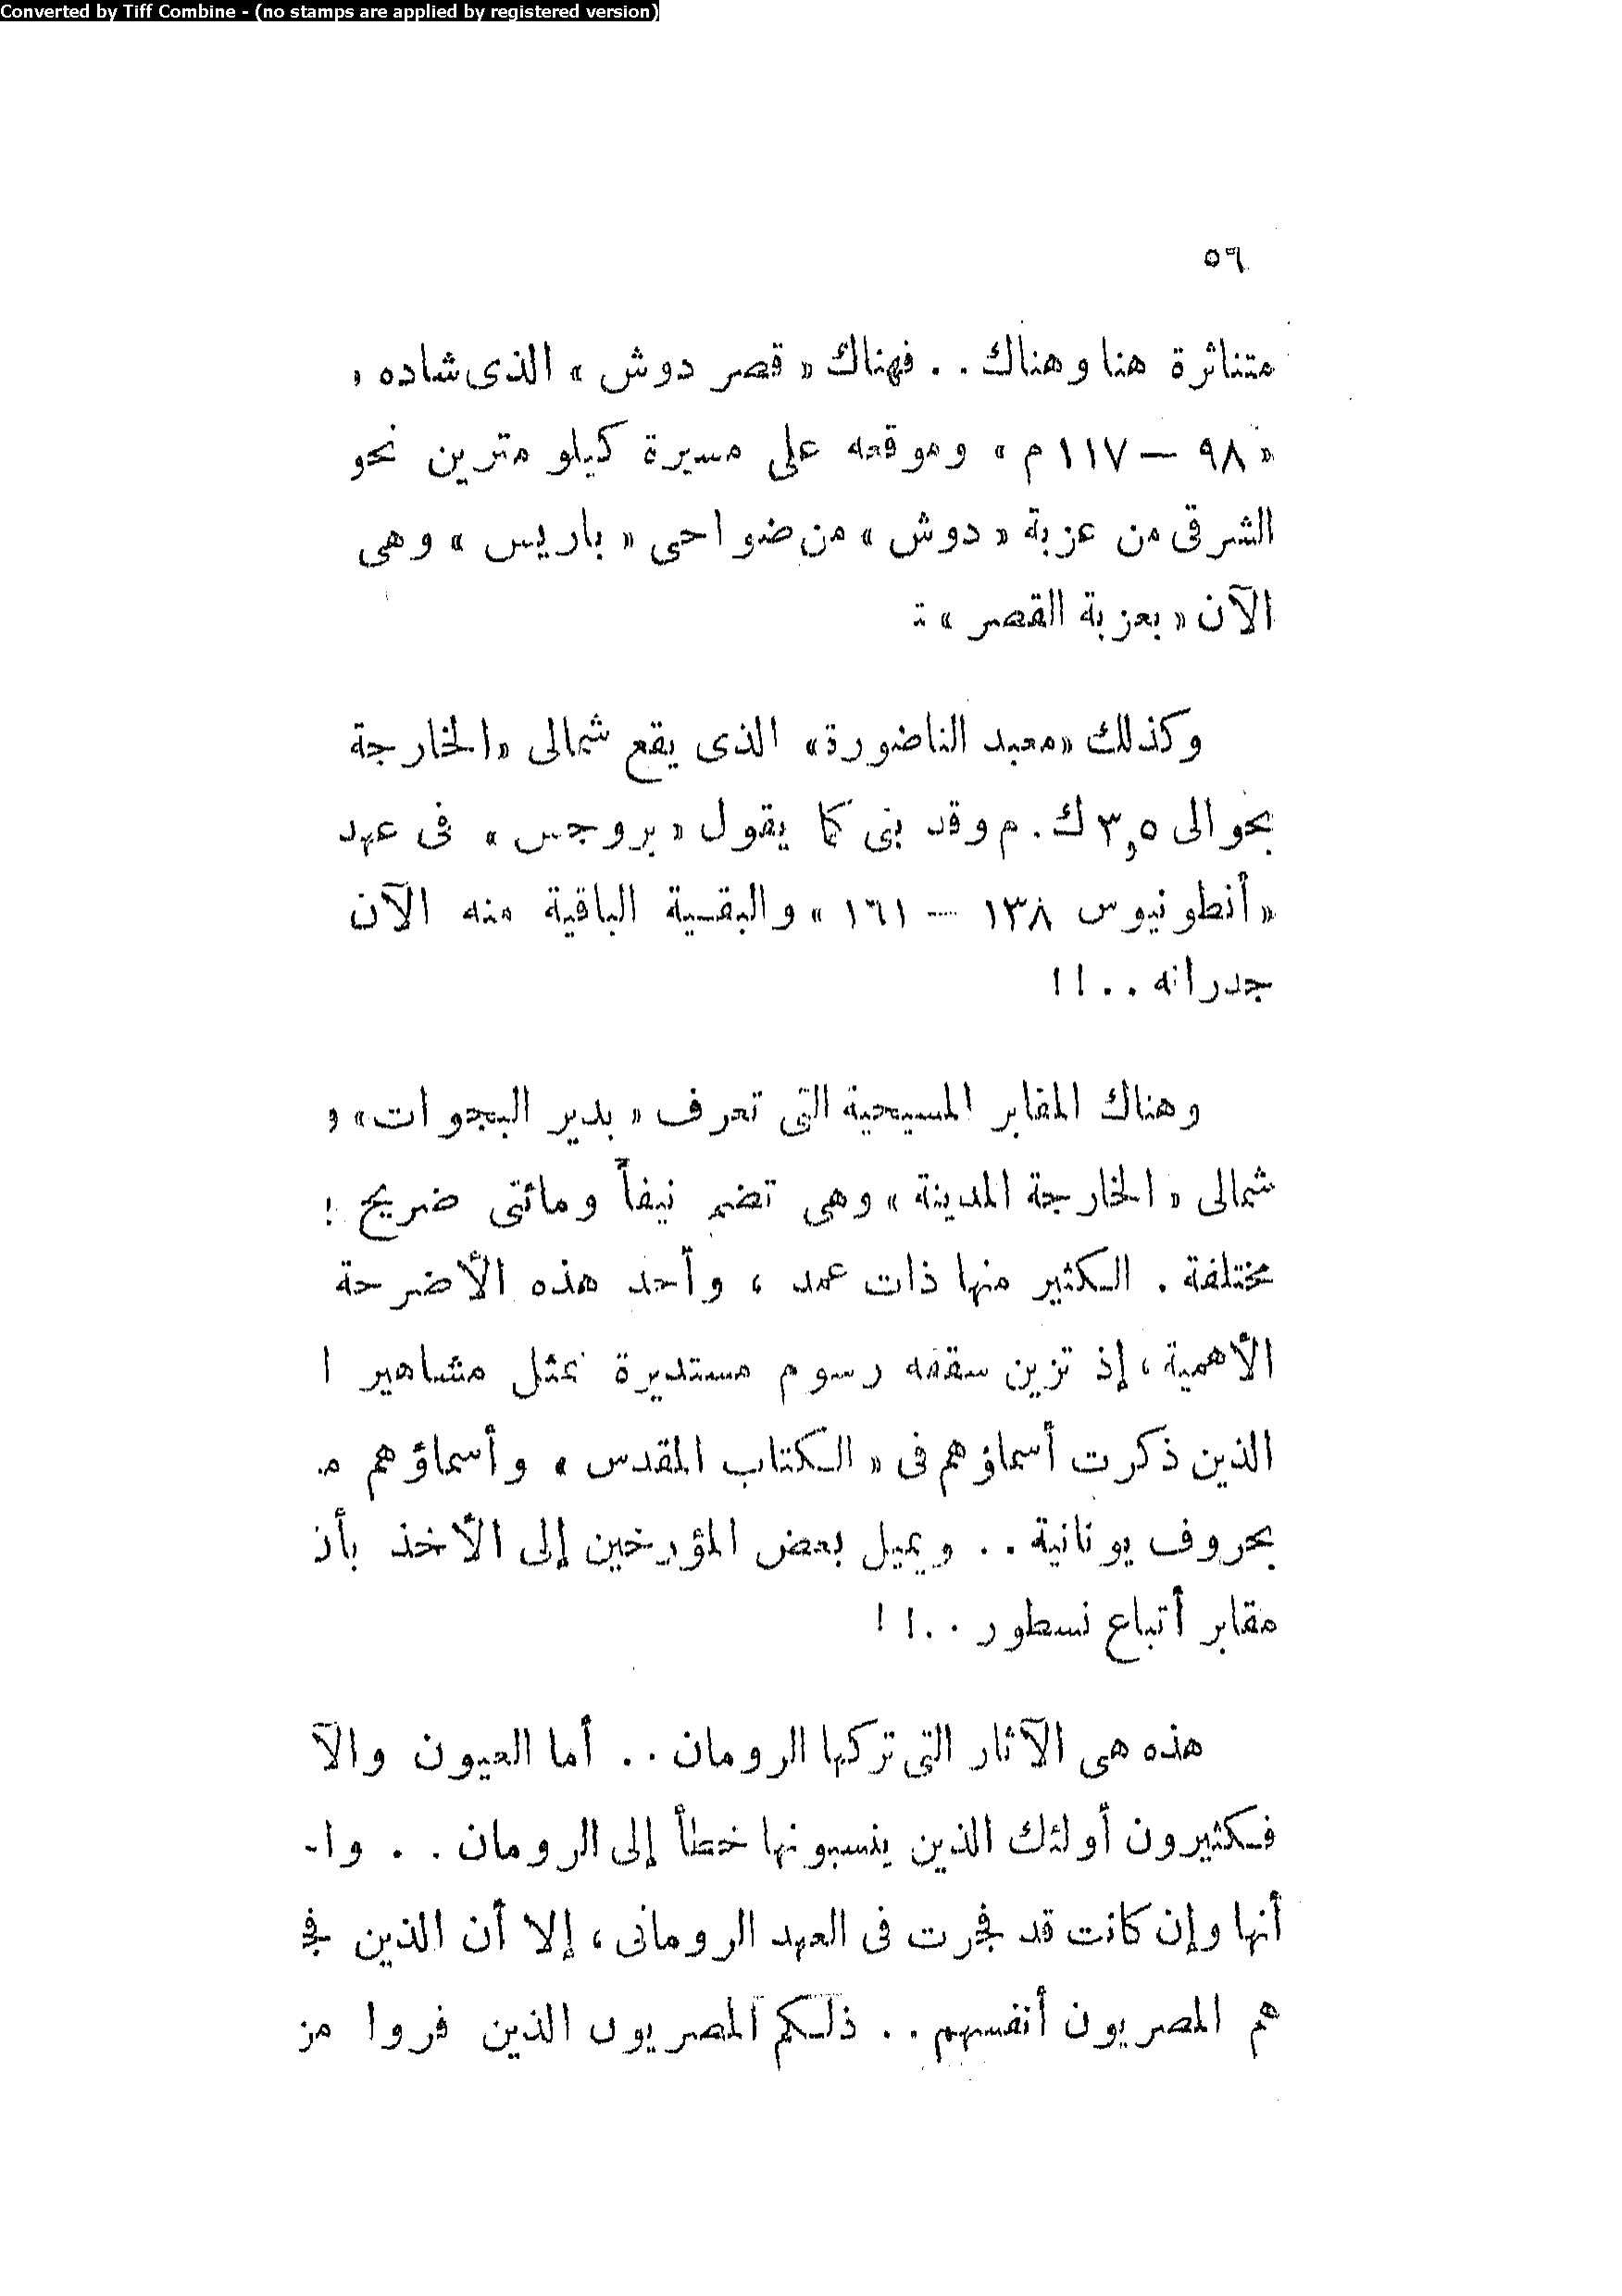 Converted by Tiff Combine - (no stamps are applied by registered version)
٥٦
متناثرة هنا وهناك . . فهناك « قصر دوش » الذى شاده
« ٩٨ — ١١٧ م » وموقعه على مسيرة كيلو مترين نحو
الشرقى من عزبة « دوش » من ضواحى « باريس » وهى
الآن « بعزبة القصر »
وكذلك «معبد الناضورة» الذى يقع شمالى «الخارجة
بحوالى ٣,٥ ك . م وقد بنى كما يقول « بروجس » فى عهد
« أنطونيوس ١٣٨ — ١٦١ » والبقسية الباقية منه الآن
جدرانه . . !!
وهناك المقابر المسيحية التى تعرف « بدير البجوات » و
شمالى « الخارجة المدينة » وهى تضم نيفاً ومائتى ضريح
مختلفة . الكثير منها ذات عمد ، وأحد هذه الأضرحة
الأهمية ، إذ تزين سقفه رسوم مستديرة تمثل مشاهير ا
الذين ذكرت أسماؤهم فى « الكتاب المقدس » وأسماؤهم
بحروف يونانية . . ويميل بعض المؤرخين إلى الأخذ
مقابر أتباع نسطور . . !!
هذه هى الآثار التى تركها الرومان . . أما العيون والآ
فكثيرون أولئك الذين ينسبونها خطأ إلى الرومان . . وا
أنها وإن كانت قد فجرت فى العهد الرومانى ، إلا أن الذين فج
هم المصريون أنفسهم . . ذلكم المصريون الذين فروا